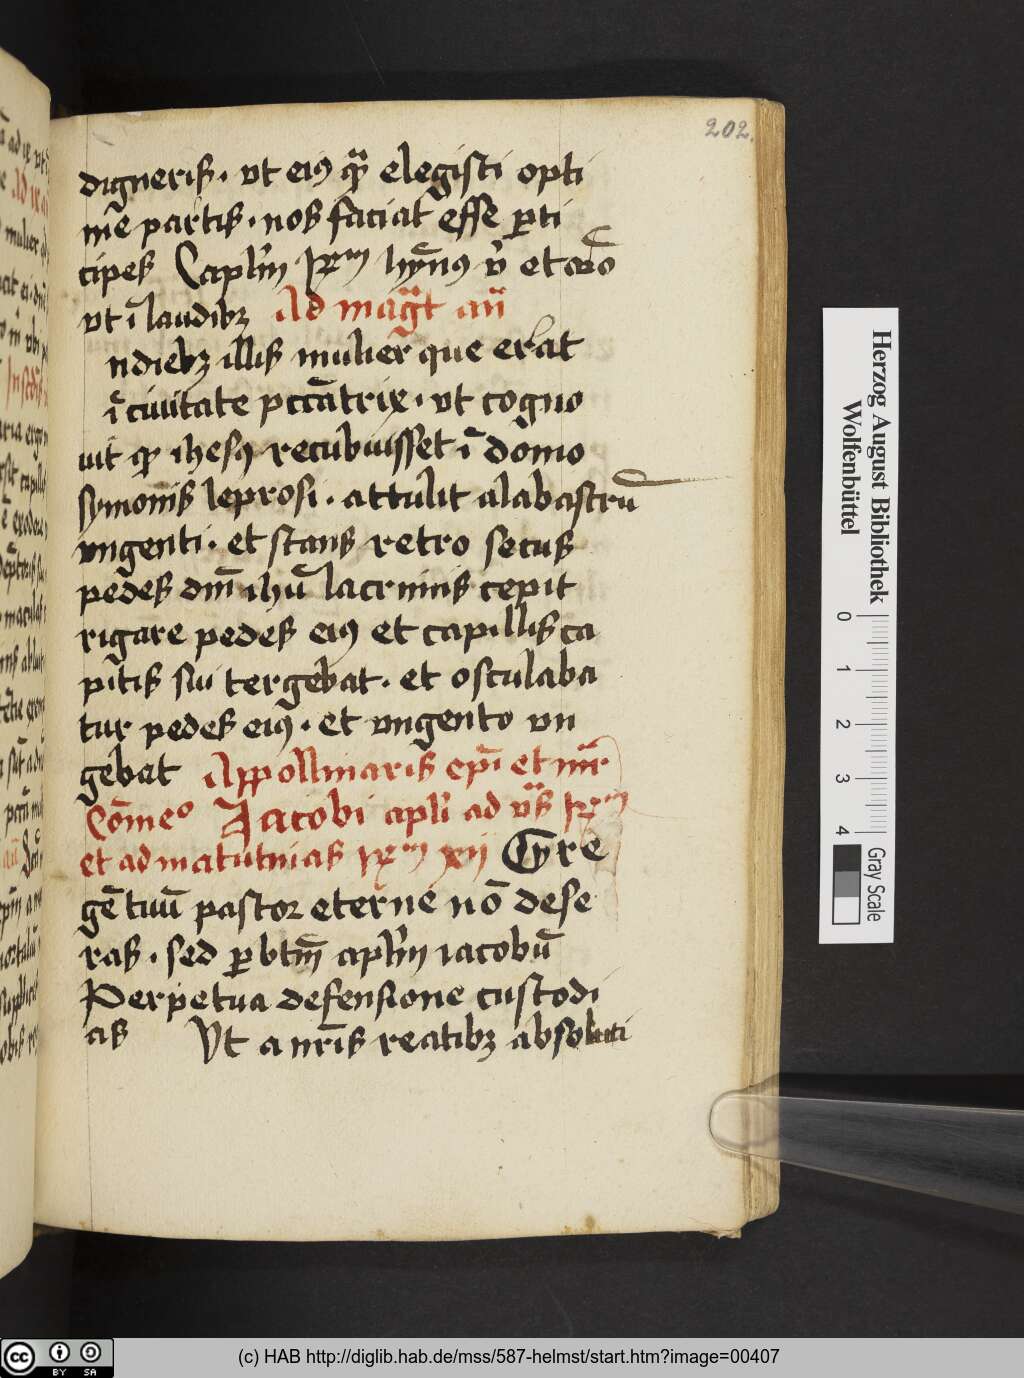 202.
digneris. vt eiꝰ qꝫ̄ elegisti opti
mē partis. nos faciat eſſe ꝑti
cipes Capl̄m hȳnꝰ v̄ et oc̄o
vt ī laudibꝫ Ad mag̅t an̄
ndiebꝫ illis mulier que erat
ī ciuitate pcc̄atrix. vt cogno
uit qꝫ ihesꝰ recubuiſſet ī domo
symonis leprosi. attulit alabastrū
vngenti. et stans retro secus
pedes dn̄i ihū lacrimis cepit
rigare pedes eiꝰ et capillis ca
pitis sui tergebat. et osculaba
tur pedes eiꝰ. et vngento vn
gebat Appollinaris ep̄i et mr̄
Cōmeo Iacobi apl̄i ad v̄s
et ad matutinas xij Gre
gē tuū pastor eterne nō dese
ras. sed ꝑ btm̄ apl̄m iacobū
Perpetua defensione custodi
as Vt a nr̄is reatibꝫ absoluti
Herzog August Bibliothek
Wolfenbüttel
0 1 2 3 4
Gray Scale
cc BY SA
(c) HAB http://diglib.hab.de/mss/587-helmst/start.htm?image=00407